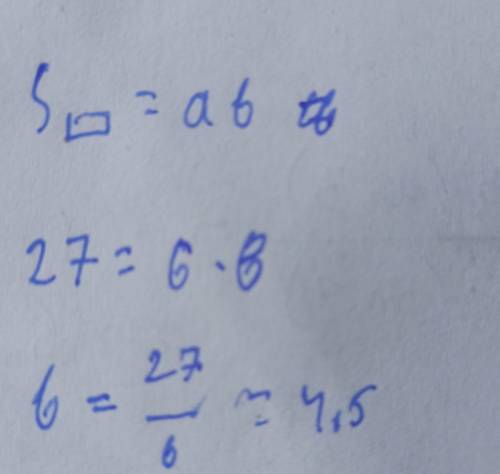 S▭ = ab
27 = 6 · b
b = 27/6 = 4,5